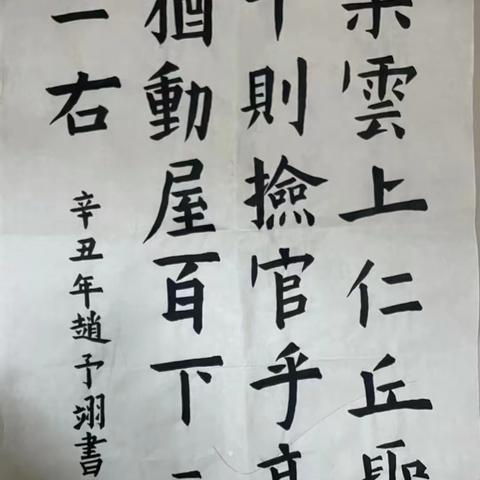 雲上仁丘
則撿官乎
猶動屋百下
一右
辛丑年趙予翊書